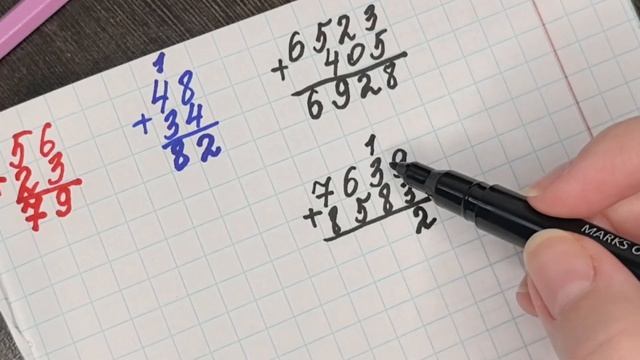 56
+ 23
79
1
48
+ 34
82
6523
+ 405
6928
1
7639
+ 8583
2
MARKS O